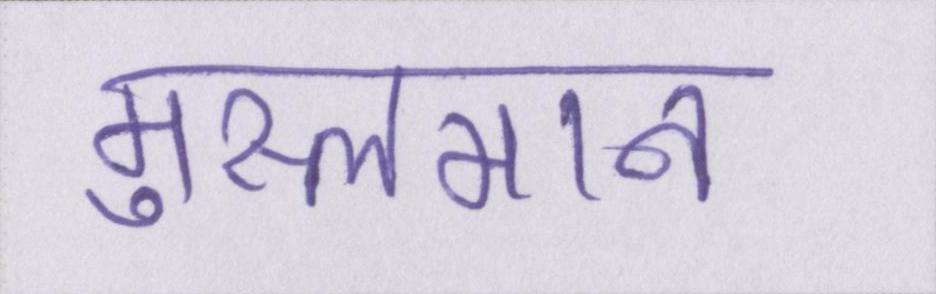 मुस्लमान